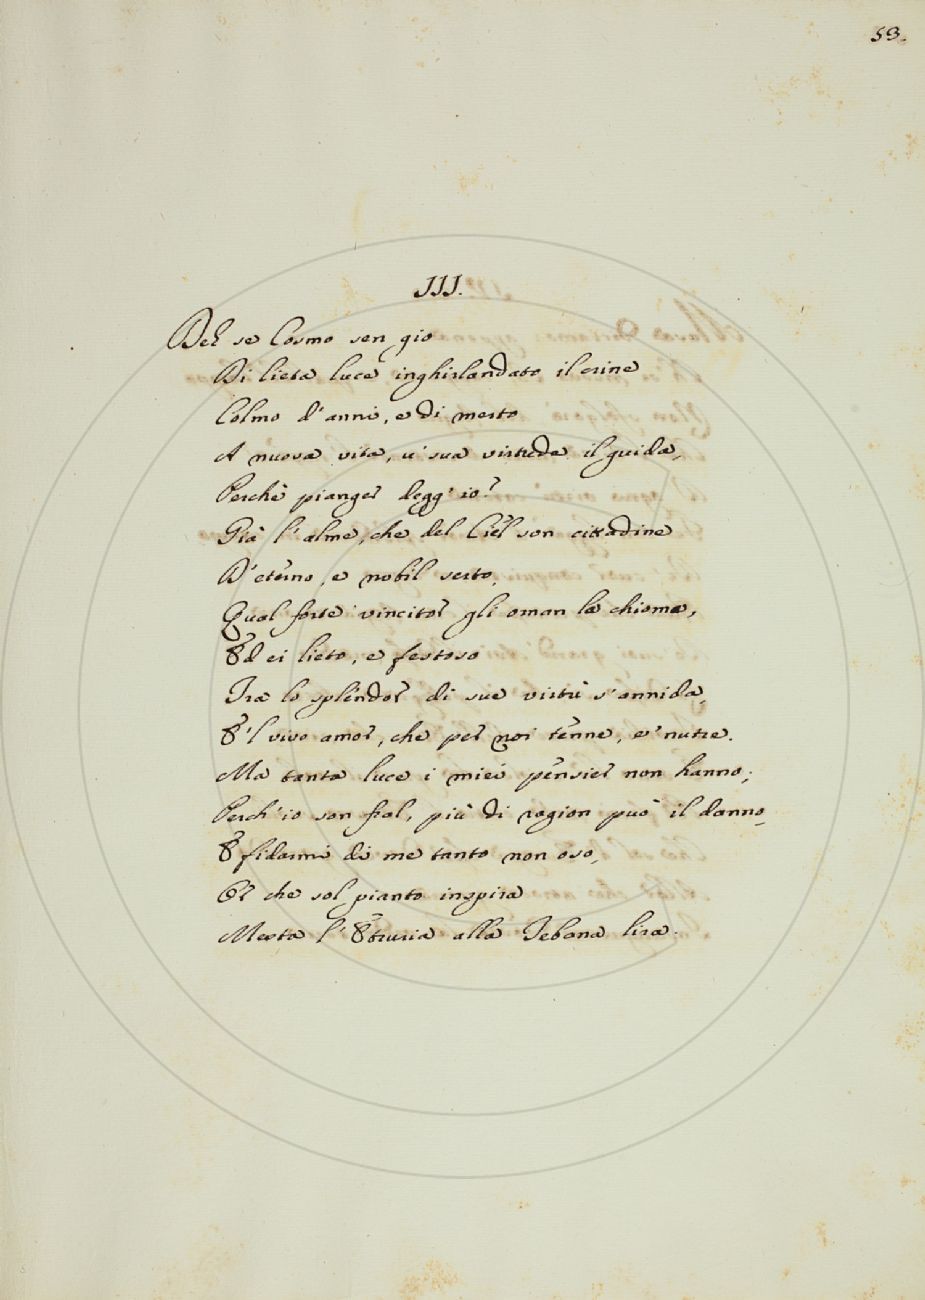 53.
III.
Deh se Cosmo sen gio
Di lieta luce inghirlandato il crine
Colmo d'anni, e di merto
A nuova vita, u' sua virtude il guida,
Perchè pianger degg'io?
Già l'alme, che del Ciel son cittadine
D'eterno, e nobil serto,
Qual forte vincitor gli ornan la chioma,
Ed ei lieto, e festoso
Tra lo splendor di sue virtù s'annida,
E'l vivo amor, che per noi tenne, e' nutre.
Ma tanta luce i miei pensier non hanno;
Perch'io son fral, più di ragion può il danno,
E fidarmi di me tanto non oso,
Or che sol pianto inspira
Mesta l'Etruria alla Tebana lira.